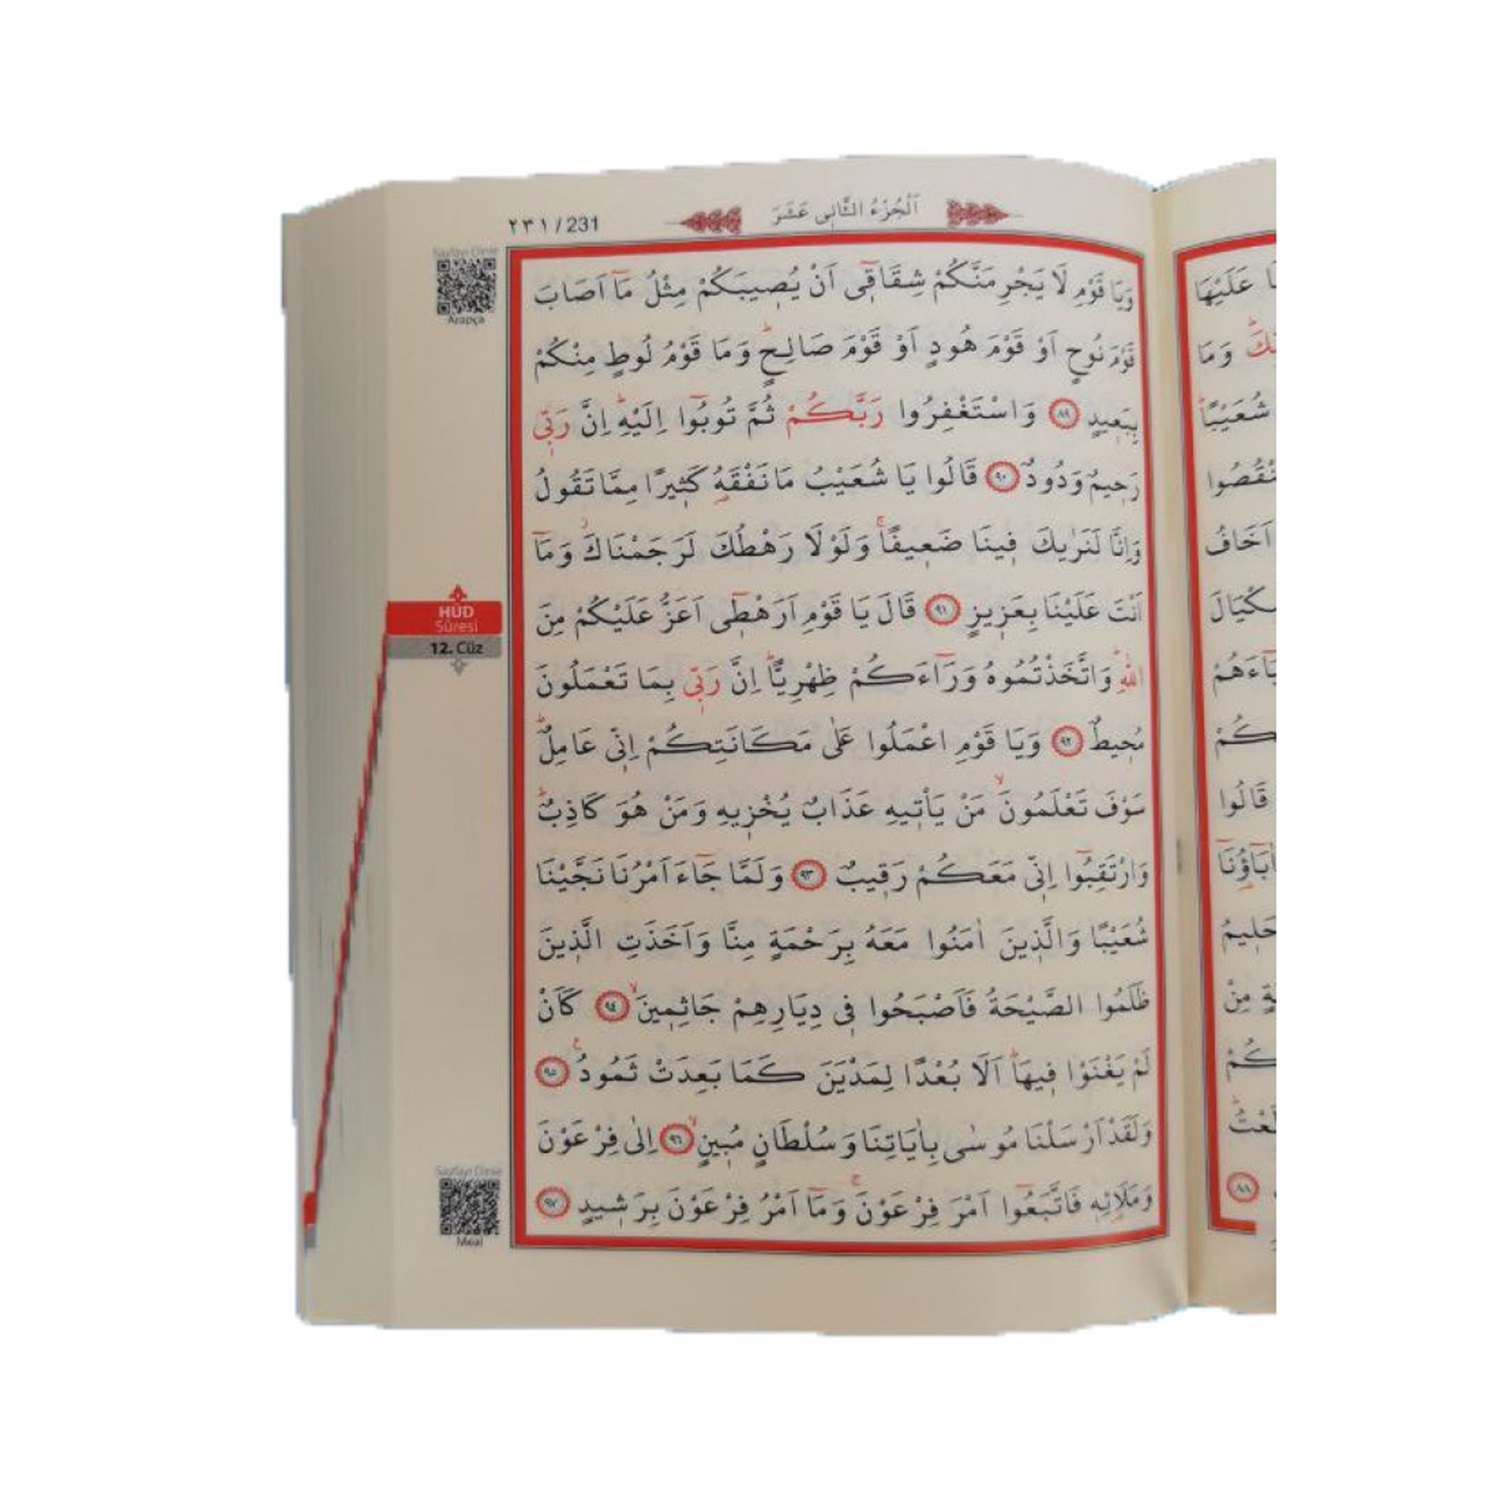 ٢٣١ / 231
اَلْجُزْءُ الثَّانِى عَشَرَ
Sayfayı Dinle
Arapça
وَيَا قَوْمِ لَا يَجْرِمَنَّكُمْ شِقَاقٖٓى اَنْ يُصٖيبَكُمْ مِثْلُ مَٓا اَصَابَ
قَوْمَ نُوحٍ اَوْ قَوْمَ هُودٍ اَوْ قَوْمَ صَالِحٍؕ وَمَا قَوْمُ لُوطٍ مِنْكُمْ
بِبَعٖيدٍ ٨٩ وَاسْتَغْفِرُوا رَبَّكُمْ ثُمَّ تُوبُٓوا اِلَيْهِؕ اِنَّ رَبّٖى
رَحٖيمٌ وَدُودٌ ٩٠ قَالُوا يَا شُعَيْبُ مَا نَفْقَهُ كَثٖيرًا مِمَّا تَقُولُ
وَاِنَّا لَنَرٰيكَ فٖينَا ضَعٖيفًاۚ وَلَوْلَا رَهْطُكَ لَرَجَمْنَاكَؗ وَمَٓا
اَنْتَ عَلَيْنَا بِعَزٖيزٍ ٩١ قَالَ يَا قَوْمِ اَرَهْطٖٓى اَعَزُّ عَلَيْكُمْ مِنَ
اللّٰهِؕ وَاتَّخَذْتُمُوهُ وَرَٓاءَكُمْ ظِهْرِيًّاؕ اِنَّ رَبّٖى بِمَا تَعْمَلُونَ
مُحٖيطٌ ٩٢ وَيَا قَوْمِ اعْمَلُوا عَلٰى مَكَانَتِكُمْ اِنّٖى عَامِلٌؕ
سَوْفَ تَعْلَمُونَۙ مَنْ يَأْتٖيهِ عَذَابٌ يُخْزٖيهِ وَمَنْ هُوَ كَاذِبٌؕ
وَارْتَقِبُٓوا اِنّٖى مَعَكُمْ رَقٖيبٌ ٩٣ وَلَمَّا جَٓاءَ اَمْرُنَا نَجَّيْنَا
شُعَيْبًا وَالَّذٖينَ اٰمَنُوا مَعَهُ بِرَحْمَةٍ مِنَّا وَاَخَذَتِ الَّذٖينَ
ظَلَمُوا الصَّيْحَةُ فَاَصْبَحُوا فٖى دِيَارِهِمْ جَاثِمٖينَۙ ٩٤ كَاَنْ
لَمْ يَغْنَوْا فٖيهَاؕ اَلَا بُعْدًا لِمَدْيَنَ كَمَا بَعِدَتْ ثَمُودُۚ ٩٥
وَلَقَدْ اَرْسَلْنَا مُوسٰى بِاٰيَاتِنَا وَسُلْطَانٍ مُبٖينٍۙ ٩٦ اِلٰى فِرْعَوْنَ
وَمَلَا۬ئِهٖ فَاتَّبَعُٓوا اَمْرَ فِرْعَوْنَۚ وَمَٓا اَمْرُ فِرْعَوْنَ بِرَشٖيدٍ ٩٧
HÛD
Sûresi
12. Cüz
Sayfayı Dinle
Meal
عَلَيْهَا
وَمَا
شُعَيْبًا
اَخَافُ
قَالُوا
مِنْ
٨٨